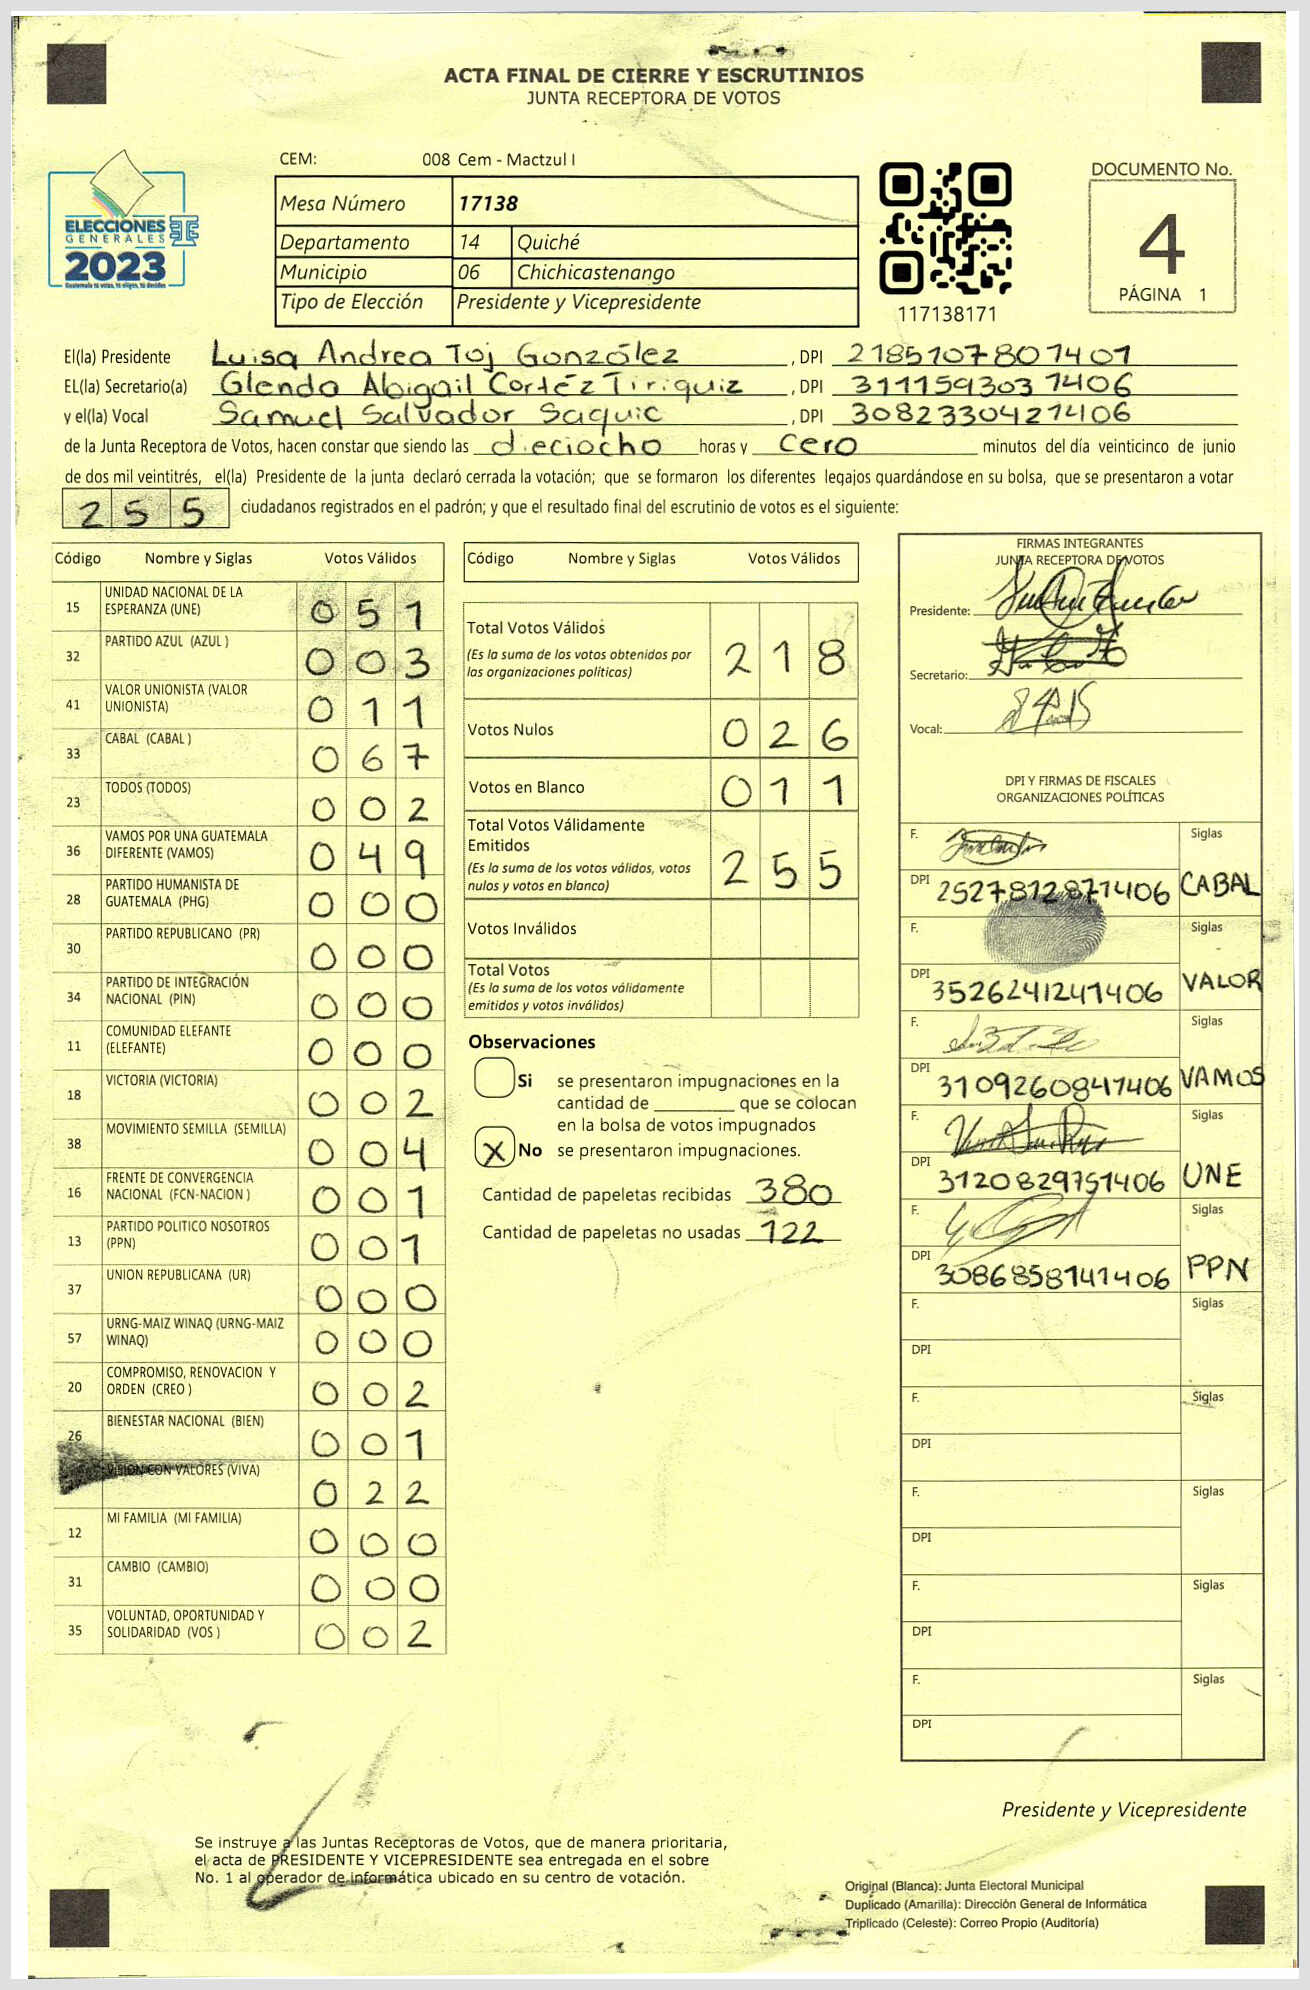 ACTA FINAL DE CIERRE Y ESCRUTINIOS
JUNTA RECEPTORA DE VOTOS
CEM: 008 Cem - Mactzul I
ELECCIONES
GENERALES
2023
Guatemala tú votas, tú eliges, tú decides
Mesa Número 17138
Departamento 14 Quiché
Municipio 06 Chichicastenango
Tipo de Elección Presidente y Vicepresidente
117138171
DOCUMENTO No.
4
PÁGINA 1
El(la) Presidente Luisa Andrea Toj González, DPI 2185107801401
EL(la) Secretario(a) Glenda Abigail Cortéz Tiriquiz, DPI 3111593031406
y el(la) Vocal Samuel Salvador Saquic, DPI 3082330421406
de la Junta Receptora de Votos, hacen constar que siendo las dieciocho horas y cero minutos del día veinticinco de junio
de dos mil veintitrés, el(la) Presidente de la junta declaró cerrada la votación; que se formaron los diferentes legajos guardándose en su bolsa, que se presentaron a votar
255 ciudadanos registrados en el padrón; y que el resultado final del escrutinio de votos es el siguiente:
Código Nombre y Siglas Votos Válidos
15 UNIDAD NACIONAL DE LA ESPERANZA (UNE) 051
32 PARTIDO AZUL (AZUL ) 003
41 VALOR UNIONISTA (VALOR UNIONISTA) 011
33 CABAL (CABAL ) 067
23 TODOS (TODOS) 002
36 VAMOS POR UNA GUATEMALA DIFERENTE (VAMOS) 049
28 PARTIDO HUMANISTA DE GUATEMALA (PHG) 000
30 PARTIDO REPUBLICANO (PR) 000
34 PARTIDO DE INTEGRACIÓN NACIONAL (PIN) 000
11 COMUNIDAD ELEFANTE (ELEFANTE) 000
18 VICTORIA (VICTORIA) 002
38 MOVIMIENTO SEMILLA (SEMILLA) 004
16 FRENTE DE CONVERGENCIA NACIONAL (FCN-NACION ) 001
13 PARTIDO POLITICO NOSOTROS (PPN) 001
37 UNION REPUBLICANA (UR) 000
57 URNG-MAIZ WINAQ (URNG-MAIZ WINAQ) 000
20 COMPROMISO, RENOVACION Y ORDEN (CREO ) 002
26 BIENESTAR NACIONAL (BIEN) 001
VISION CON VALORES (VIVA) 022
12 MI FAMILIA (MI FAMILIA) 000
31 CAMBIO (CAMBIO) 000
35 VOLUNTAD, OPORTUNIDAD Y SOLIDARIDAD (VOS ) 002
Código Nombre y Siglas Votos Válidos
Total Votos Válidos 218
(Es la suma de los votos obtenidos por
las organizaciones políticas)
Votos Nulos 026
Votos en Blanco 011
Total Votos Válidamente
Emitidos 255
(Es la suma de los votos válidos, votos
nulos y votos en blanco)
Votos Inválidos
Total Votos
(Es la suma de los votos válidamente
emitidos y votos inválidos)
Observaciones
Si se presentaron impugnaciones en la
cantidad de ________ que se colocan
en la bolsa de votos impugnados
X No se presentaron impugnaciones.
Cantidad de papeletas recibidas 380
Cantidad de papeletas no usadas 122
FIRMAS INTEGRANTES
JUNTA RECEPTORA DE VOTOS
Presidente:
Secretario:
Vocal:
DPI Y FIRMAS DE FISCALES
ORGANIZACIONES POLÍTICAS
F. Siglas
DPI 2527812871406 CABAL
F. Siglas
DPI 3526241241406 VALOR
F. Siglas
DPI 3109260841406 VAMOS
F. Siglas
DPI 3120829751406 UNE
F. Siglas
DPI 3086858141406 PPN
F. Siglas
DPI
F. Siglas
DPI
F. Siglas
DPI
F. Siglas
DPI
F. Siglas
DPI
Presidente y Vicepresidente
Se instruye a las Juntas Receptoras de Votos, que de manera prioritaria,
el acta de PRESIDENTE Y VICEPRESIDENTE sea entregada en el sobre
No. 1 al operador de informática ubicado en su centro de votación.
Original (Blanca): Junta Electoral Municipal
Duplicado (Amarilla): Dirección General de Informática
Triplicado (Celeste): Correo Propio (Auditoría)